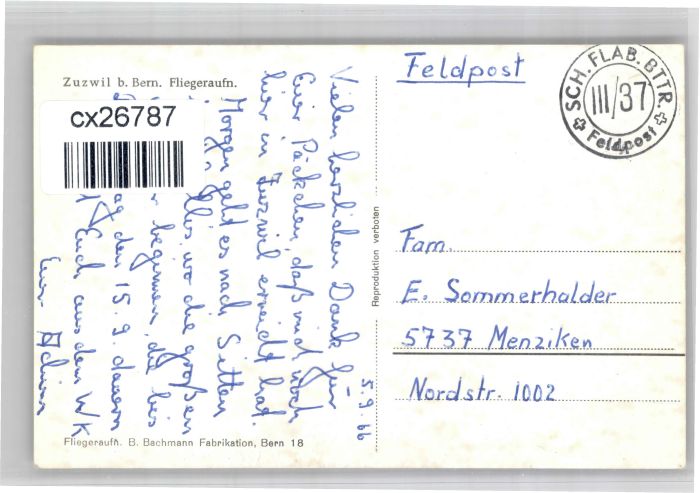 Zuzwil b. Bern. Fliegeraufn.
cx26787
5.9.66
Vielen herzlichen Dank für
Euer Päckchen, daß mich noch
hier in Zuzwil erreicht hat.
Morgen geht es nach Sitten
wo die großen
beginnen, die bis
den 15.9. dauern
Euch aus dem WK
Euer
Fliegeraufn. B. Bachmann Fabrikation, Bern 18
Reproduktion verboten
Feldpost
SCH. FLAB. BTTR.
III/37
Feldpost
Fam.
E. Sommerhalder
5737 Menziken
Nordstr. 1002